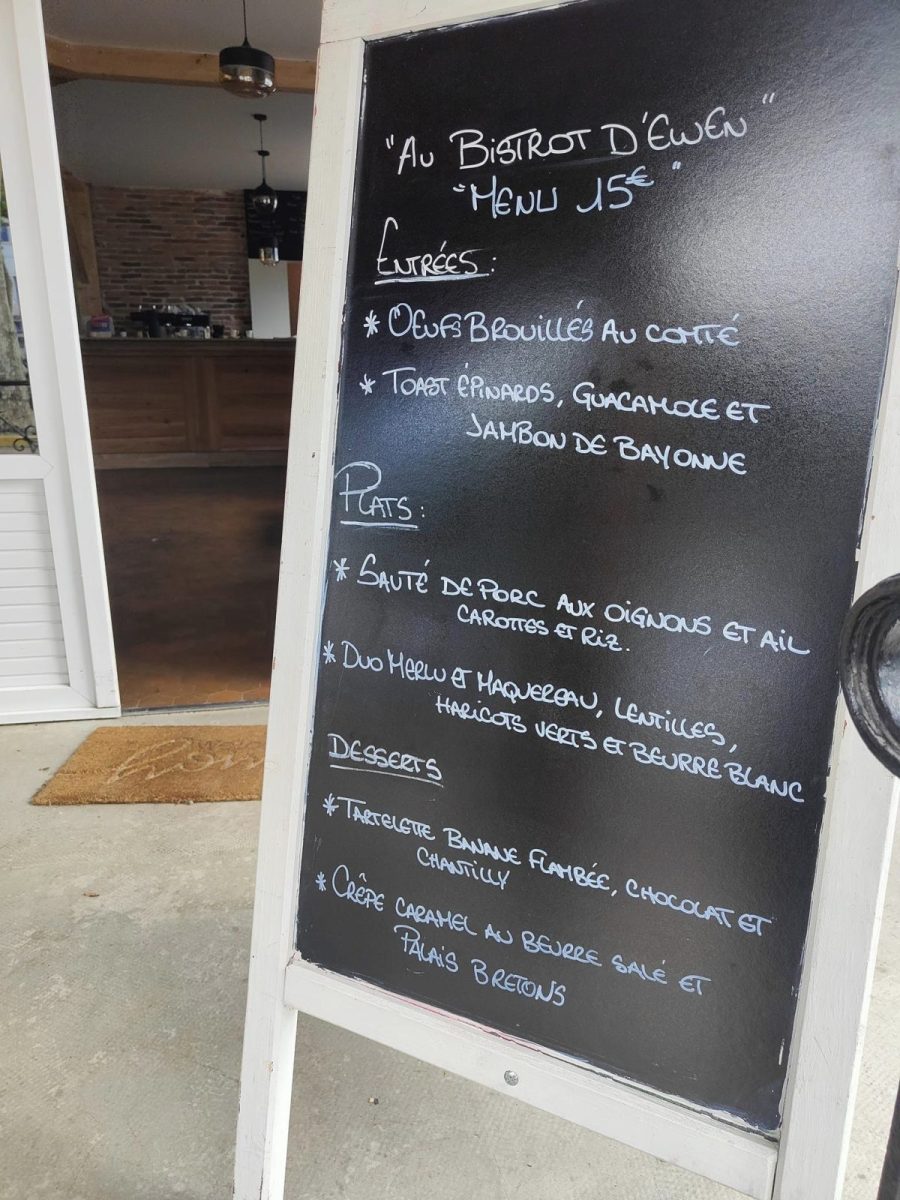 "Au BISTROT D'EWEN"
"MENU 15€"
ENTRÉES :
* OEUFS BROUILLÉS AU COMTÉ
* TOAST ÉPINARDS, GUACAMOLE ET
JAMBON DE BAYONNE
PLATS :
* SAUTÉ DE PORC AUX OIGNONS ET AIL
CAROTTES ET RIZ.
* DUO MERLU ET MAQUEREAU, LENTILLES,
HARICOTS VERTS ET BEURRE BLANC
DESSERTS
* TARTELETTE BANANE FLAMBÉE, CHOCOLAT ET
CHANTILLY
* CRÊPE CARAMEL AU BEURRE SALÉ ET
PALAIS BRETONS